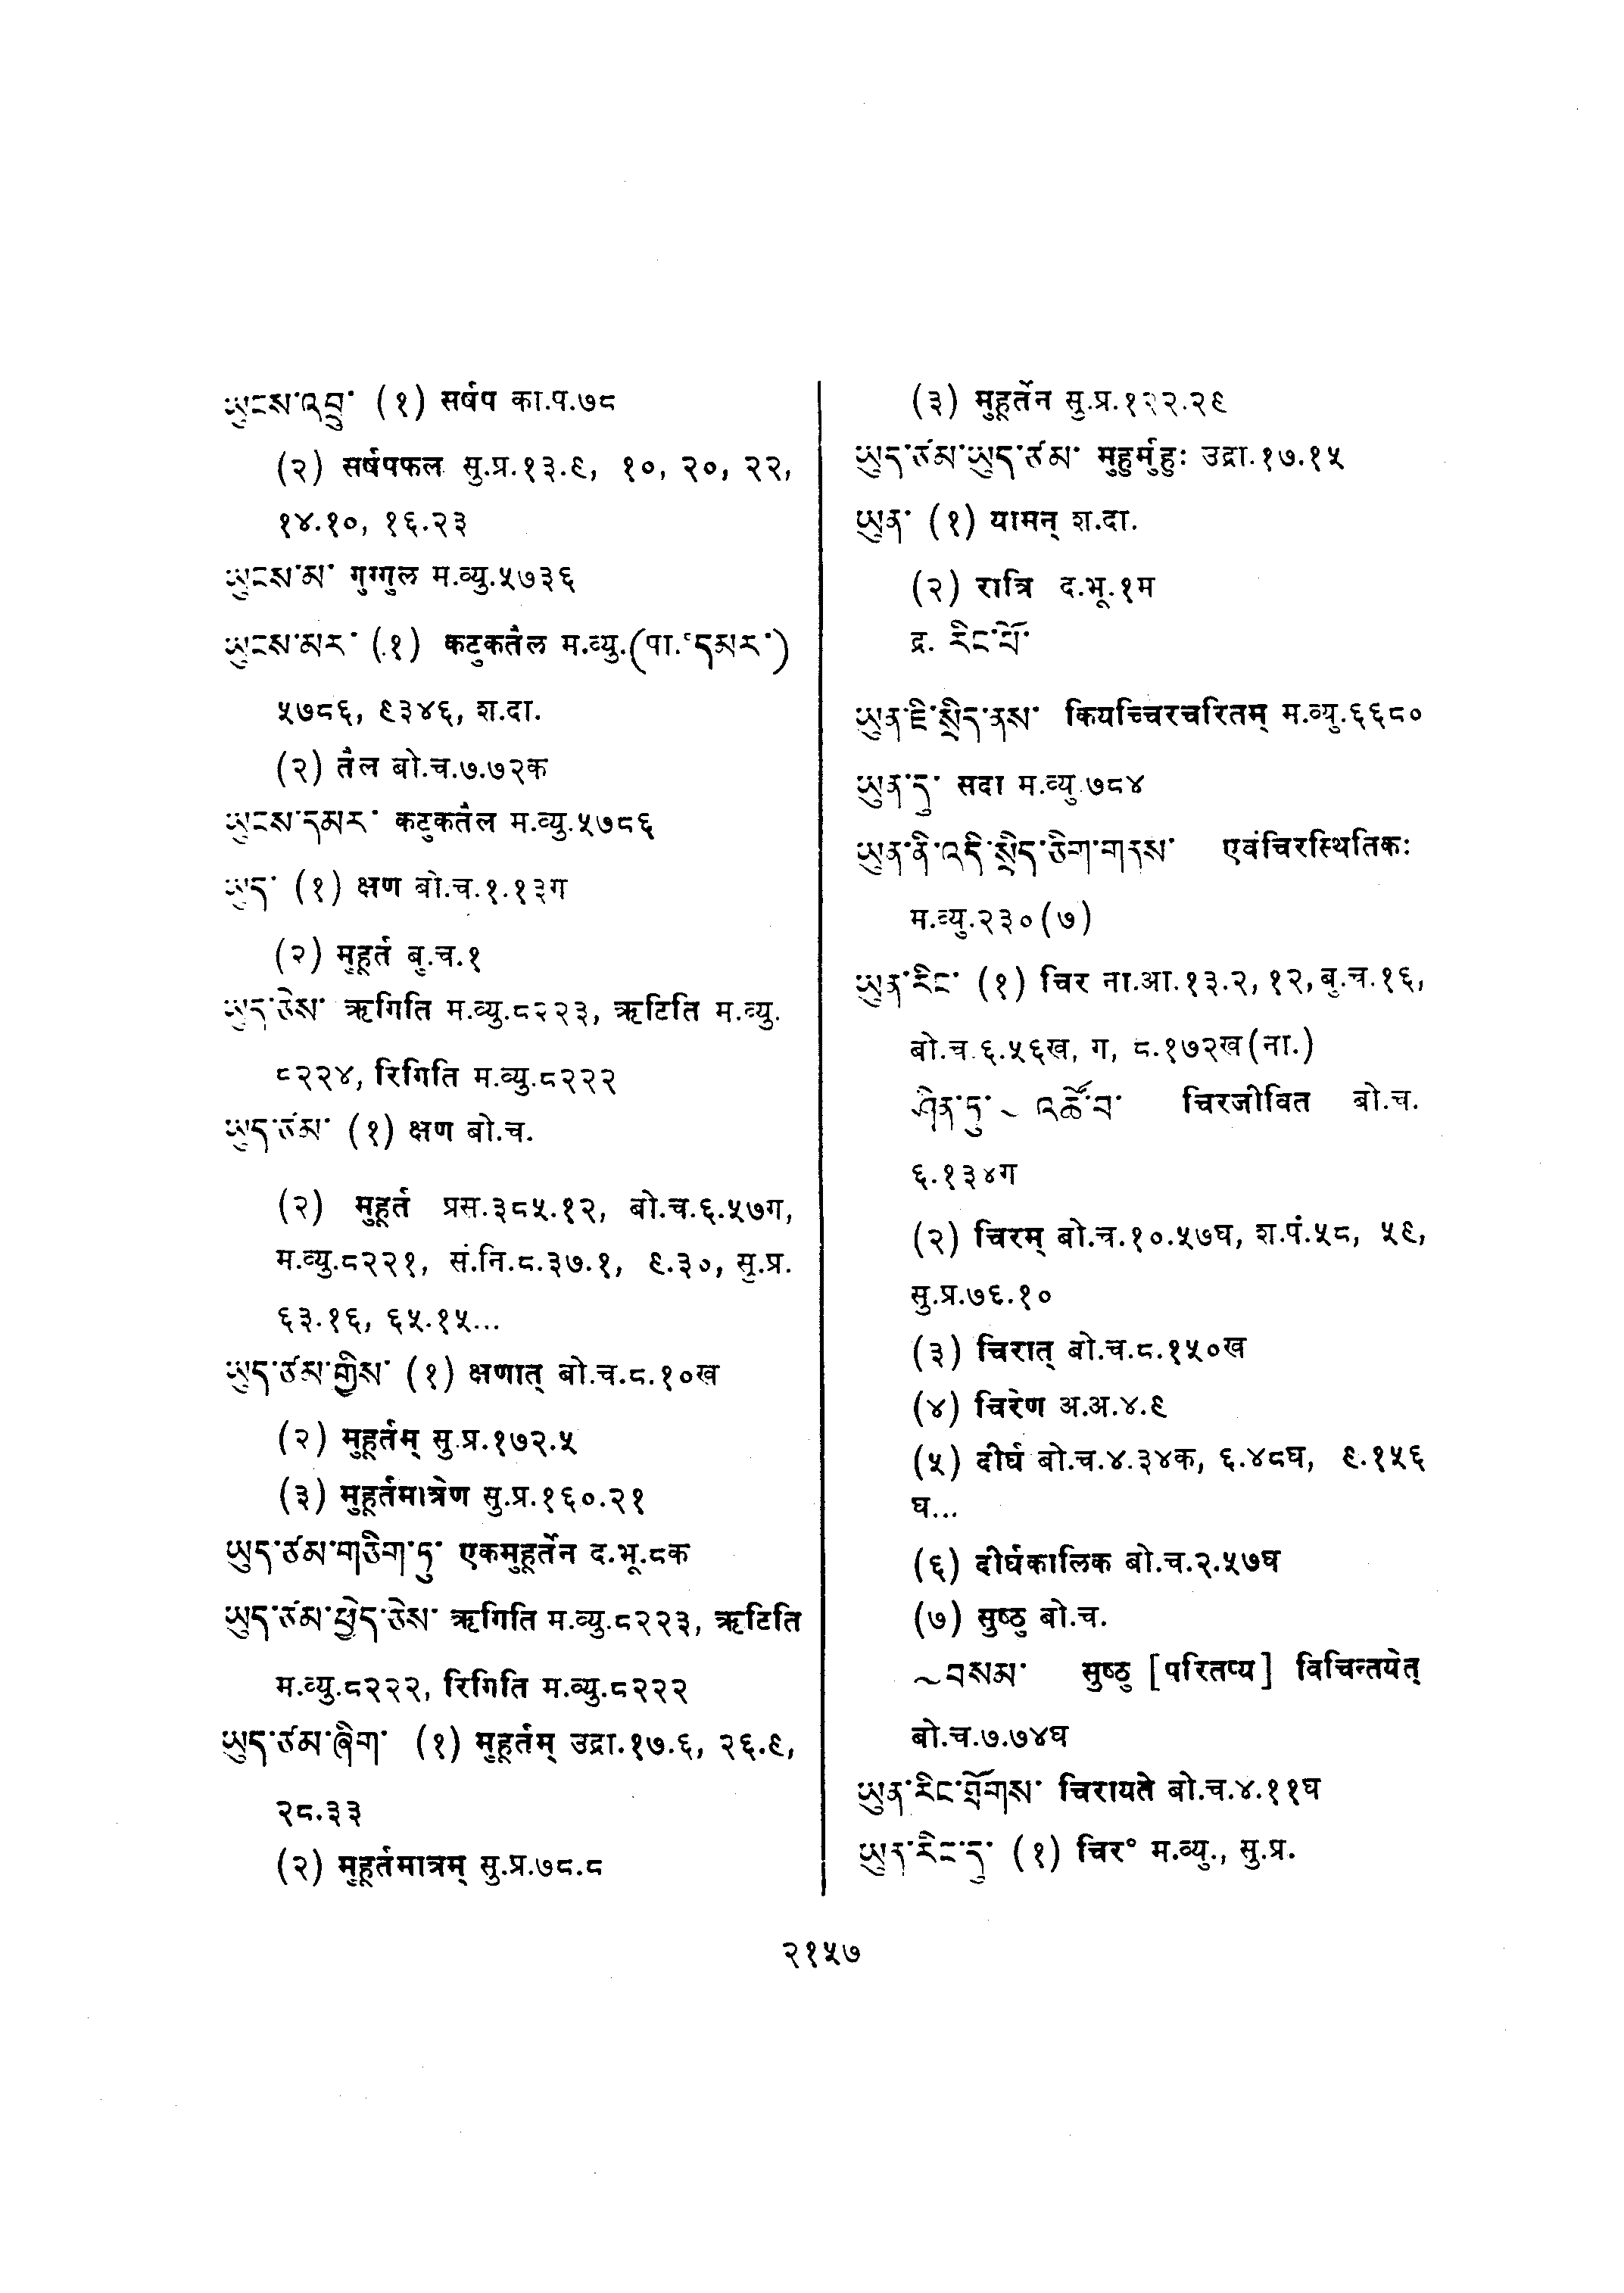 ཡུངས་འབྲུ་ (१) सर्षप का.प.७८
(२) सर्षपफल सु.प्र.१३.९, १०, २०, २२,
१४.१०, १६.२३
ཡུངས་མ་ गुग्गुल म.व्यु.५७३६
ཡུངས་མར་ (१) कटुकतैल म.व्यु.(पा.°དམར་)
५७८६, ९३४६, श.दा.
(२) तैल बो.च.७.७२क
ཡུངས་དམར་ कटुकतैल म.व्यु.५७८६
ཡུད་ (१) क्षण बो.च.१.१३ग
(२) मुहूर्त बु.च.१
ཡུད་ཅེས་ ऋगिति म.व्यु.८२२३, ऋटिति म.व्यु.
८२२४, रिगिति म.व्यु.८२२२
ཡུད་ཙམ་ (१) क्षण बो.च.
(२) मुहूर्त प्रस.३८५.१२, बो.च.६.५७ग,
म.व्यु.८२२१, सं.नि.८.३७.१, ९.३०, सु.प्र.
६३.१६, ६५.१५...
ཡུད་ཙམ་གྱིས་ (१) क्षणात् बो.च.८.१०ख
(२) मुहूर्तम् सु.प्र.१७२.५
(३) मुहूर्तमात्रेण सु.प्र.१६०.२१
ཡུད་ཙམ་གཅིག་ཏུ་ एकमुहूर्तेन द.भू.८क
ཡུད་ཙམ་ཕྱེད་ཅེས་ ऋगिति म.व्यु.८२२३, ऋटिति
म.व्यु.८२२२, रिगिति म.व्यु.८२२२
ཡུད་ཙམ་ཞིག་ (१) मुहूर्तम् उद्रा.१७.६, २६.९,
२८.३३
(२) मुहूर्तमात्रम् सु.प्र.७८.८
(३) मुहूर्तेन सु.प्र.१२२.२९
ཡུད་ཙམ་ཡུད་ཙམ་ मुहुर्मुहुः उद्रा.१७.१५
ཡུན་ (१) यामन् श.दा.
(२) रात्रि द.भू.१म
द्र. རིང་པོ་
ཡུན་ཇི་སྲིད་ནས་ कियच्चिरचरितम् म.व्यु.६६८०
ཡུན་དུ་ सदा म.व्यु.७८४
ཡུན་ནི་འདི་སྲིད་ཅིག་གནས་ एवंचिरस्थितिकः
म.व्यु.२३०(७)
ཡུན་རིང་ (१) चिर ना.आ.१३.२, १२, बु.च.१६,
बो.च.६.५६ख, ग, ८.१७२ख(ना.)
ཤིན་ཏུ་ ~ འཚོ་བ་ चिरजीवित बो.च.
६.१३४ग
(२) चिरम् बो.च.१०.५७घ, श.पं.५८, ५९,
सु.प्र.७६.१०
(३) चिरात् बो.च.८.१५०ख
(४) चिरेण अ.अ.४.९
(५) दीर्घ बो.च.४.३४क, ६.४८घ, ९.१५६
घ...
(६) दीर्घकालिक बो.च.२.५७घ
(७) सुष्ठु बो.च.
~བསམ་ सुष्ठु [परितप्य] विचिन्तयेत्
बो.च.७.७४घ
ཡུན་རིང་ཐོགས་ चिरायते बो.च.४.११घ
ཡུན་རིང་དུ་ (१) चिर° म.व्यु., सु.प्र.
२१५७